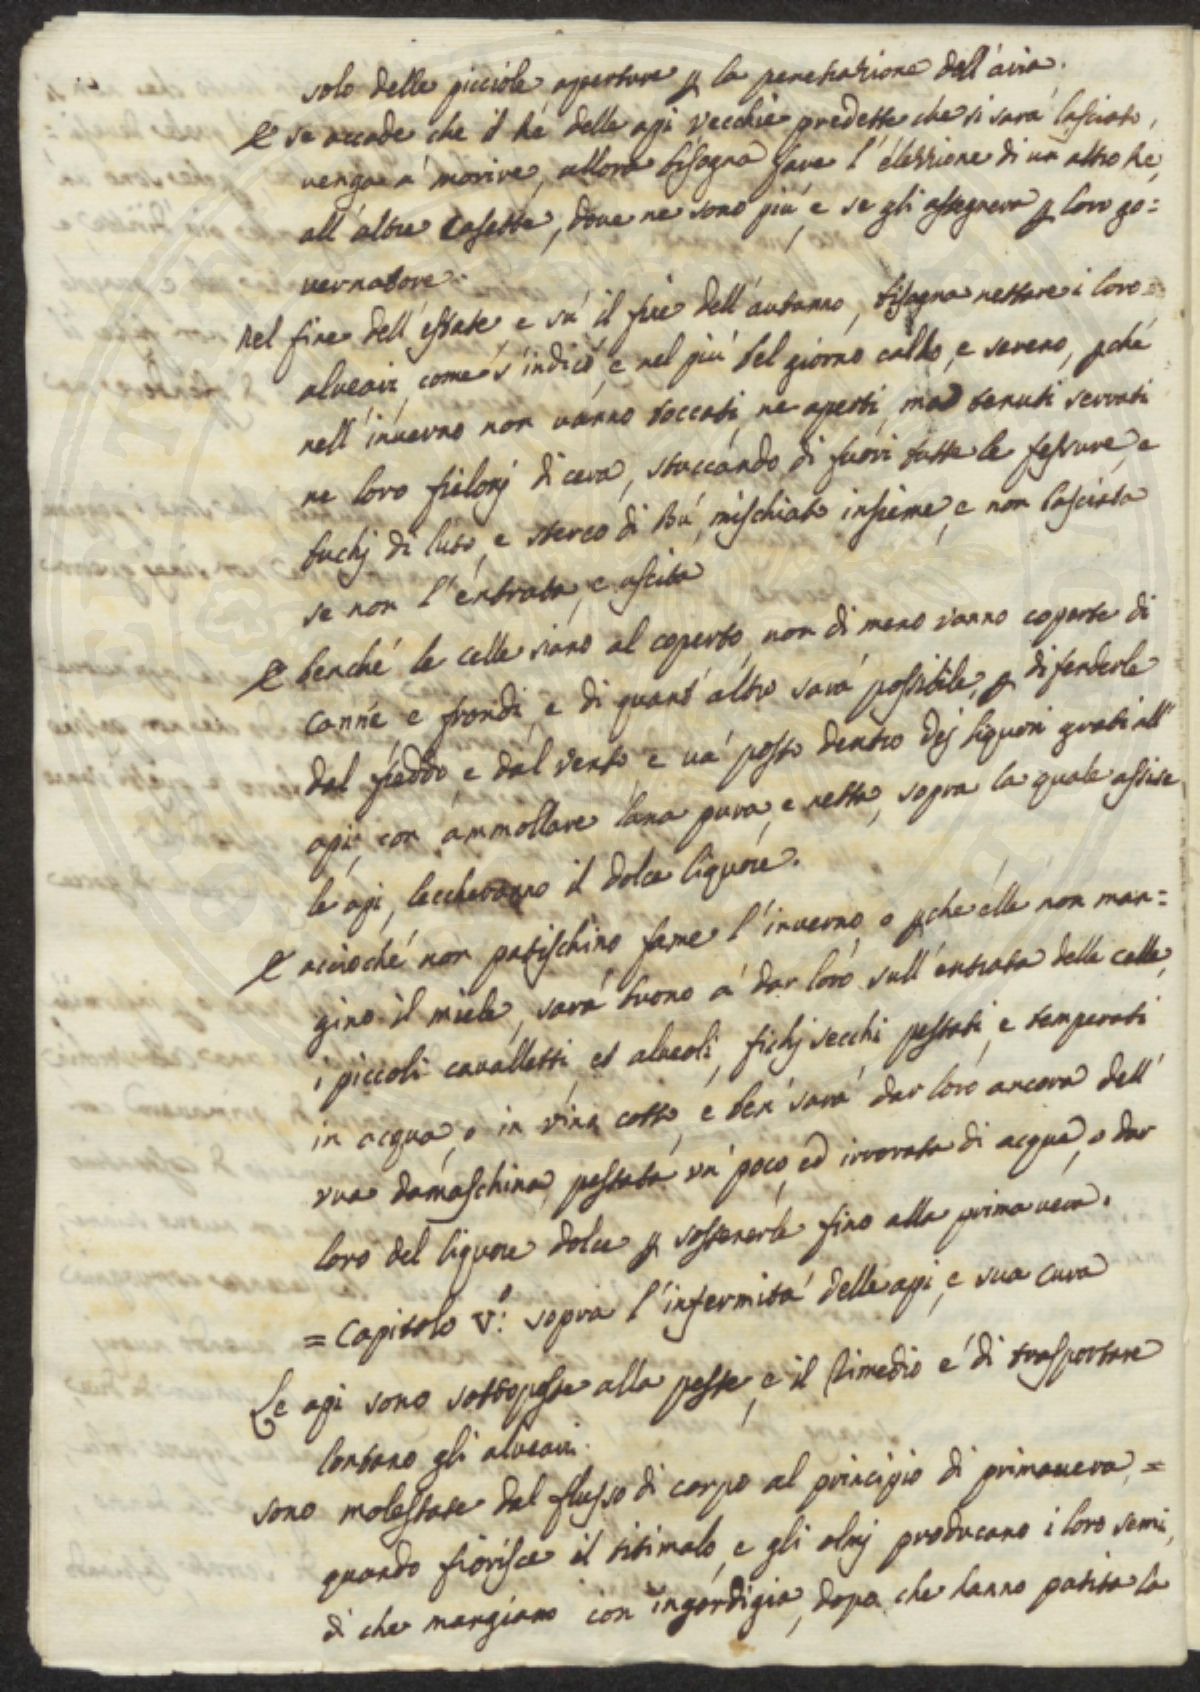 solo delle picciole apperture p la penetrazione dell'aria.
E se accade che il Ré delle api vecchie predette che si sará lasciato,
venga á morire, allora bisogna fare l'elezzione di un altro Ré,
all'altre Casette, dove ne sono piú, e se gli assegnera p loro go=
vernatore.
Nel fine dell'estate, e sú il fine dell'autanno, bisogna nettare i loro
alveari, come s'indicó, e nel piú bel giorno caldo, e sereno, pché
nell'inverno non vanno toccati, ne aperti, ma tenuti serrati
ne loro fieloni di cera, stuccando di fuori tutte le fessure, e
buchj di luto, e sterco di Bú, mischiato insieme, e non lasciata
se non l'entrata, e uscita
E benché le celle siano al coperto, non di meno vanno coperte di
canne, e frondi, e di quant'altro sará possibile, p difenderle
dal freddo e dal vento e vá posto dentro dej liquori grati all'
api, con ammollare lana pura, e netta, sopra la quale assise
le api, leccheranno il dolce liquore.
E accioché non patischino fame l'inverno, o pché elle non man=
gino il miele, sará buono á dar loro sull'entrata delle celle,
i piccoli cavalletti, et alveoli, fichj secchi pestati, e temperati
in acqua, o in vino cotto, e ben sará dar loro ancora dell'
uva damaschina, pestata un poco, ed irrorata di acqua, o dar
loro del liquore dolce p sostenerle fino alla primavera.
= Capitolo V.º sopra l'infermitá delle api, e sua cura
Le api sono sottoposte alla peste, e il Rimedio e' di trasportare
lontano gli alveari.
sono molestate dal flusso di corpo al principio di primavera =
quando fiorisce il titimalo, e gli olmj producano i loro semi,
di che mangiano con ingordigia, dopo che hanno patita la